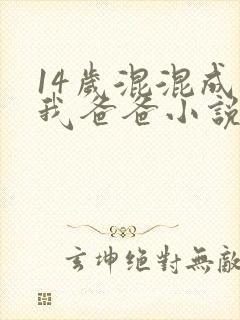 14歲混混成
我爸爸小說
玄坤絕對無敵